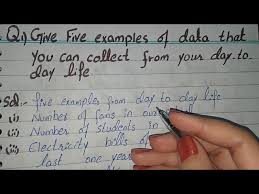 Q:1) Give Five examples of data that
you can collect from your day-to
day life
Sol:- five examples from day to day life
(i) Number of fans in our
(ii) Number of students in
(iii) Electricity bills of
last one year